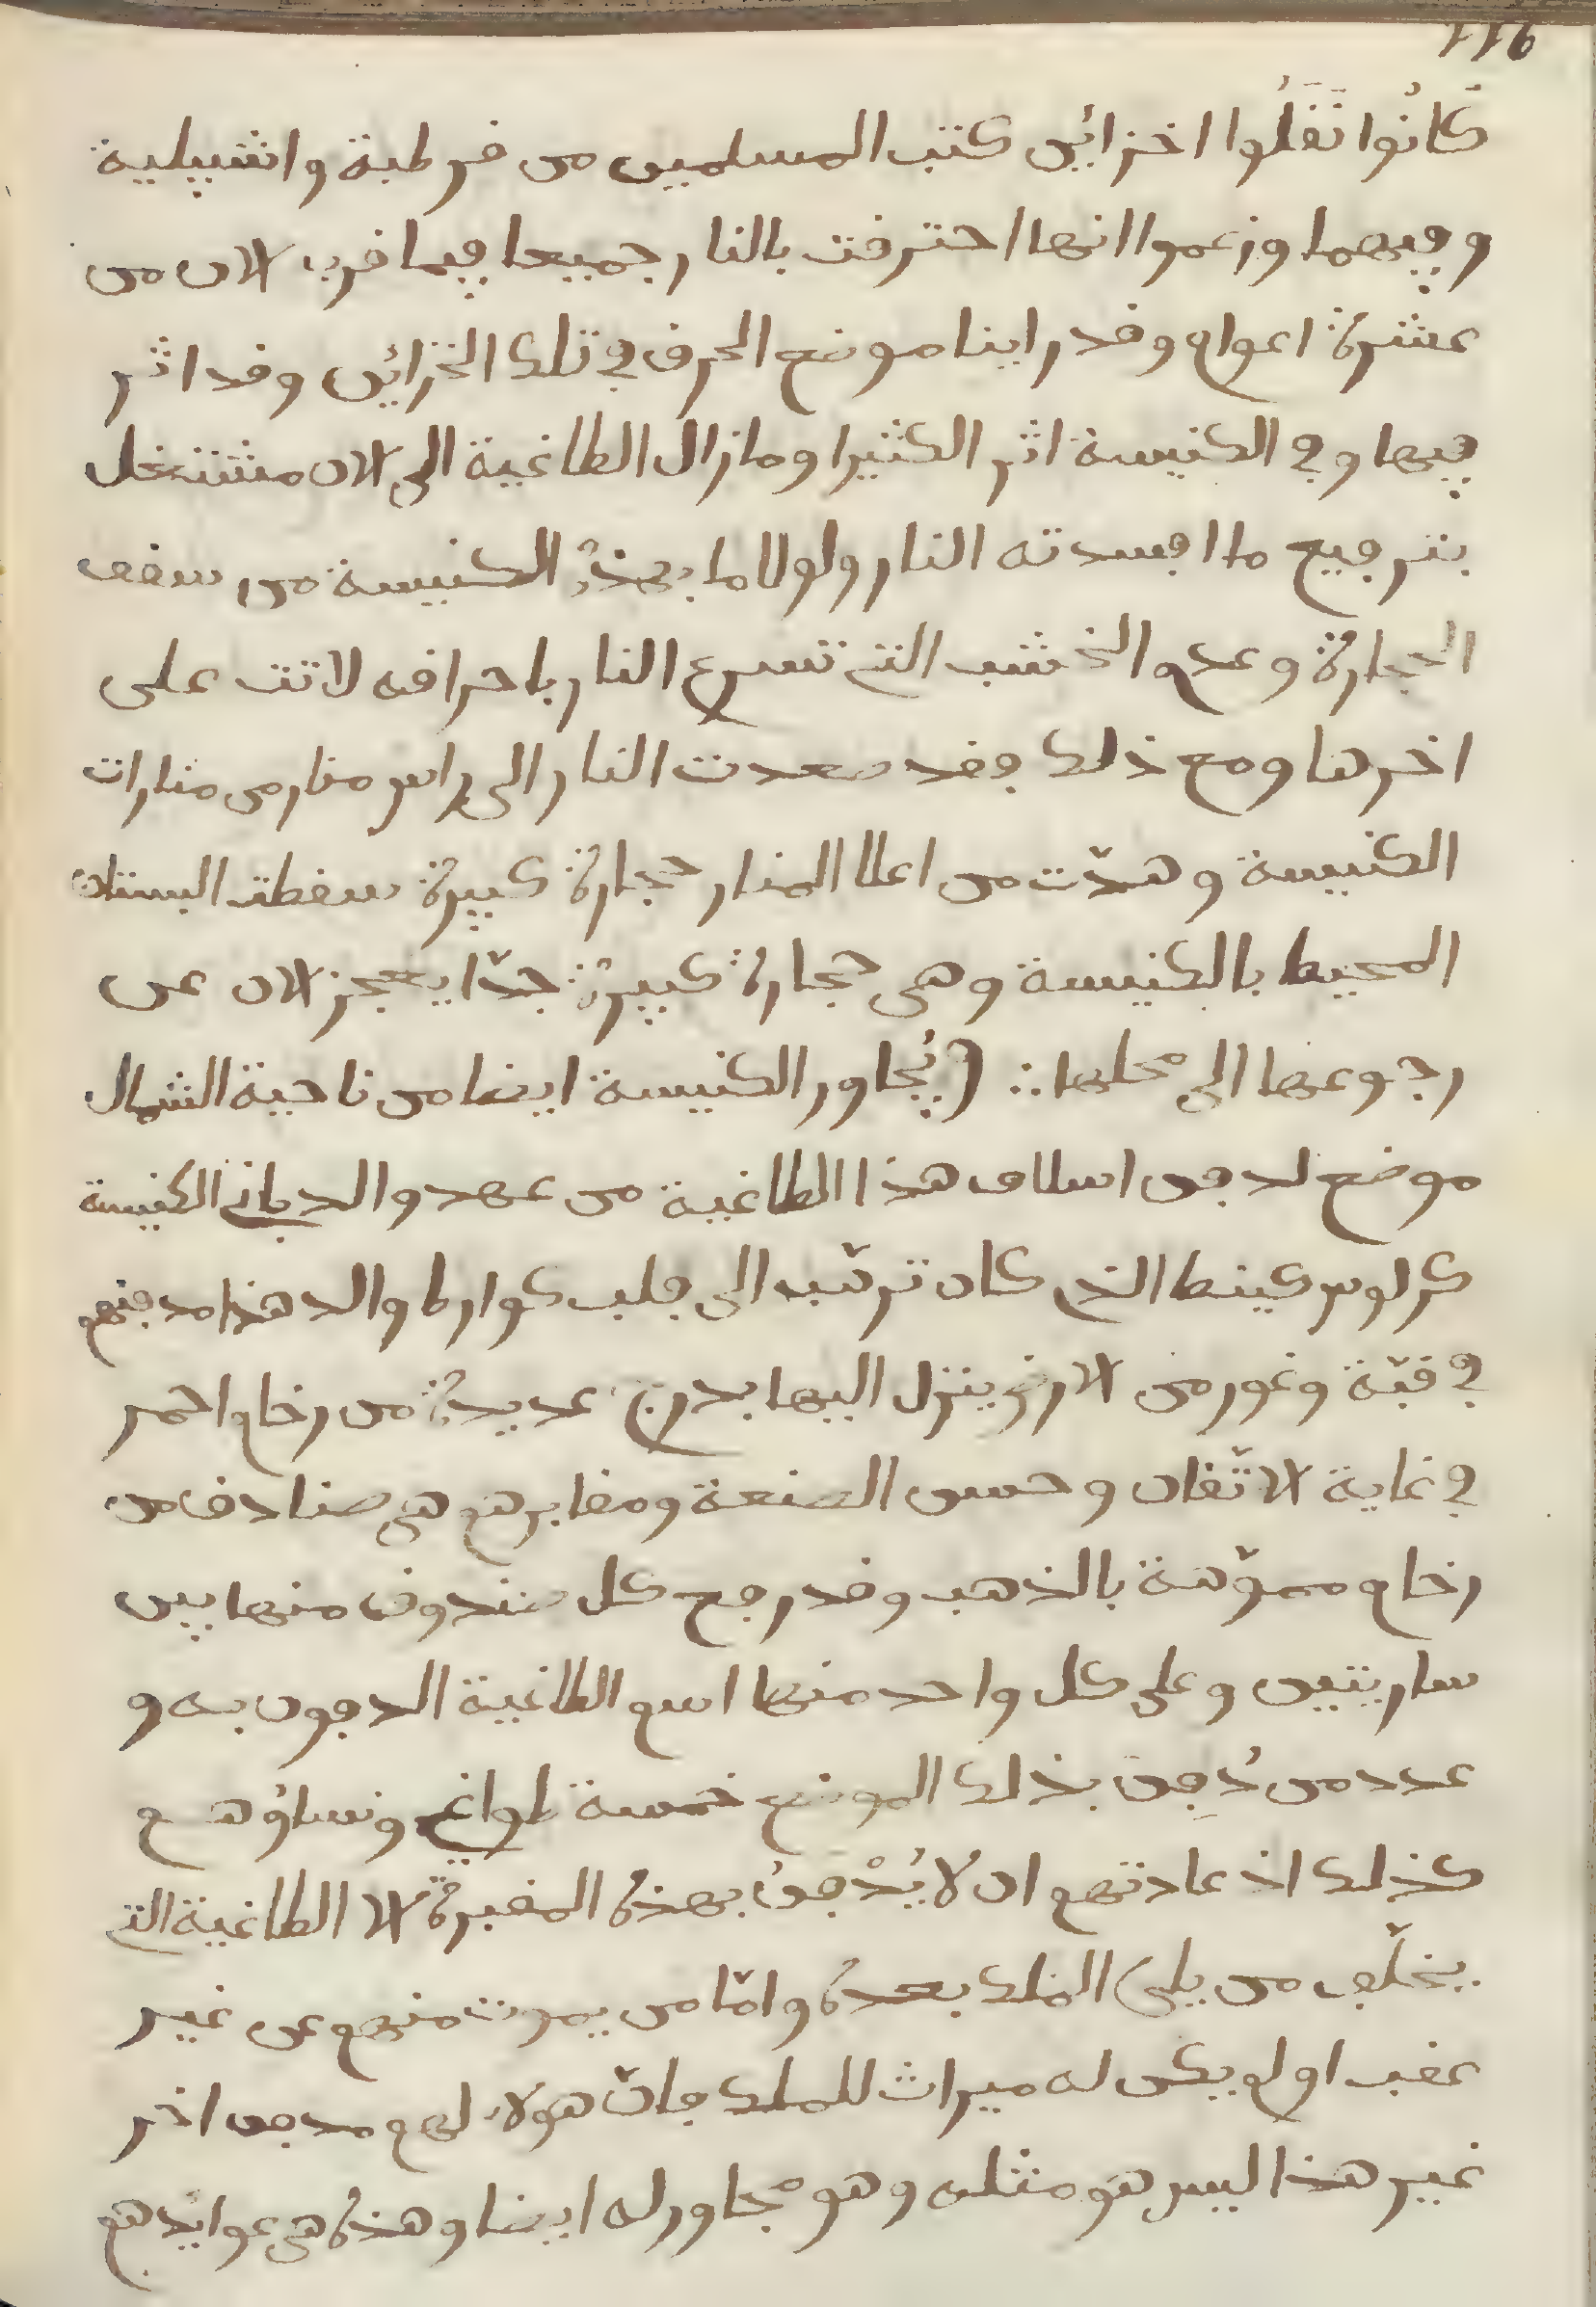 116
كَانُوا نَقَلُوا اخزائن كتب المسلمين من قرطبة واشبيلية
وفيهما وزعموا انها احترقت بالنار جميعا فيما قرب الان من
عشرة اعوام وقد راينا موضع الحرق في تلك الخزائن وقد اثر
فيها وفي الكنيسة اثر الكثيرا ومازال الطاغية الى الان مشتغل
بترقيع ما افسدته النار ولولا ما بهذه الكنيسة من سقف
الحجارة وعدم الخشب التي تسرع النار باحراقه لاتت على
اخرها ومع ذلك فقد صعدت النار الى راس منار من منارات
الكنيسة وهدّت من اعلا المنار حجارة كبيرة سقطت البستان
المحيط بالكنيسة وهي حجارة كبيرة جدّا يعجز الان عن
رجوعها الى محلها ∴ ويُجاور الكنيسة ايضا من ناحية الشمال
موضع لدفن اسلاف هذا الطاغية من عهد والد باني الكنيسة
كرلوس كينط الذي كان ترهّب الى فلب كوارط والد هذا مدفنهم
في قبّة وغور من الارض ينزل اليها بدرج عديدة من رخام احمر
في غاية الاتّقان وحسن الصنعة ومقابرهم هي صنادق من
رخام مموّهة بالذهب وقد رجع كل صندوق منها بين
ساريتين وعلى كل واحد منها اسم الطاغية المدفون به و
عدد من دُفِن بذلك الموضع خمسة طواغي ونساؤهم
كذلك اذ عادتهم ان لا يُدْفن بهذه المقبرة الا الطاغية التي
يخلّف من يلي الملك بعده وامّا من يموت منهم عن غير
عقب او لم يكن له ميراث للملك فانّ هولاء لهم مدفن اخر
غير هذا ليس هو مثله وهو مجاور له ايضا وهذه هي عوايدهم